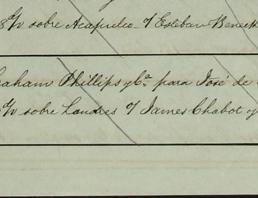 d/v sobre Acapulco. O/ Esteban Beneck
Graham Phillips y Cª. para José de
d/v sobre Londres O/ James Chabot y